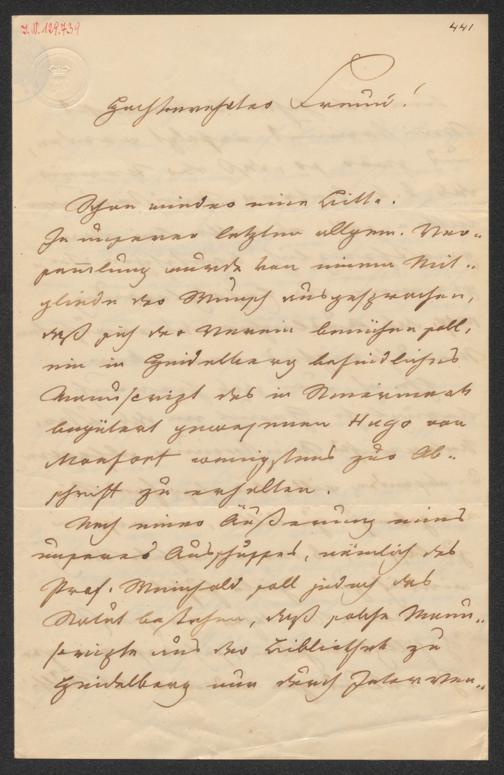 I.N. 129.739
441
Hochverehrter Freund!
Schon wieder eine Bitte.
In unserer letzten allgem. Ver-
sammlung wurde von einem Mit-
gliede der Wunsch ausgesprochen,
daß sich der Verein bemühen soll,
ein in Heidelberg befindliches
Manuscript des in Steiermark
begütert gewesenen Hugo von
Monfort wenigstens zur Ab-
schrift zu erhalten.
Nach einer Äußerung eines
unseres Ausschusses, nämlich des
Prof. Weinhold soll jedoch das
Statut bestehen, daß solche Manu-
scripte aus der Bibliothek zu
Heidelberg nur durch Interven-